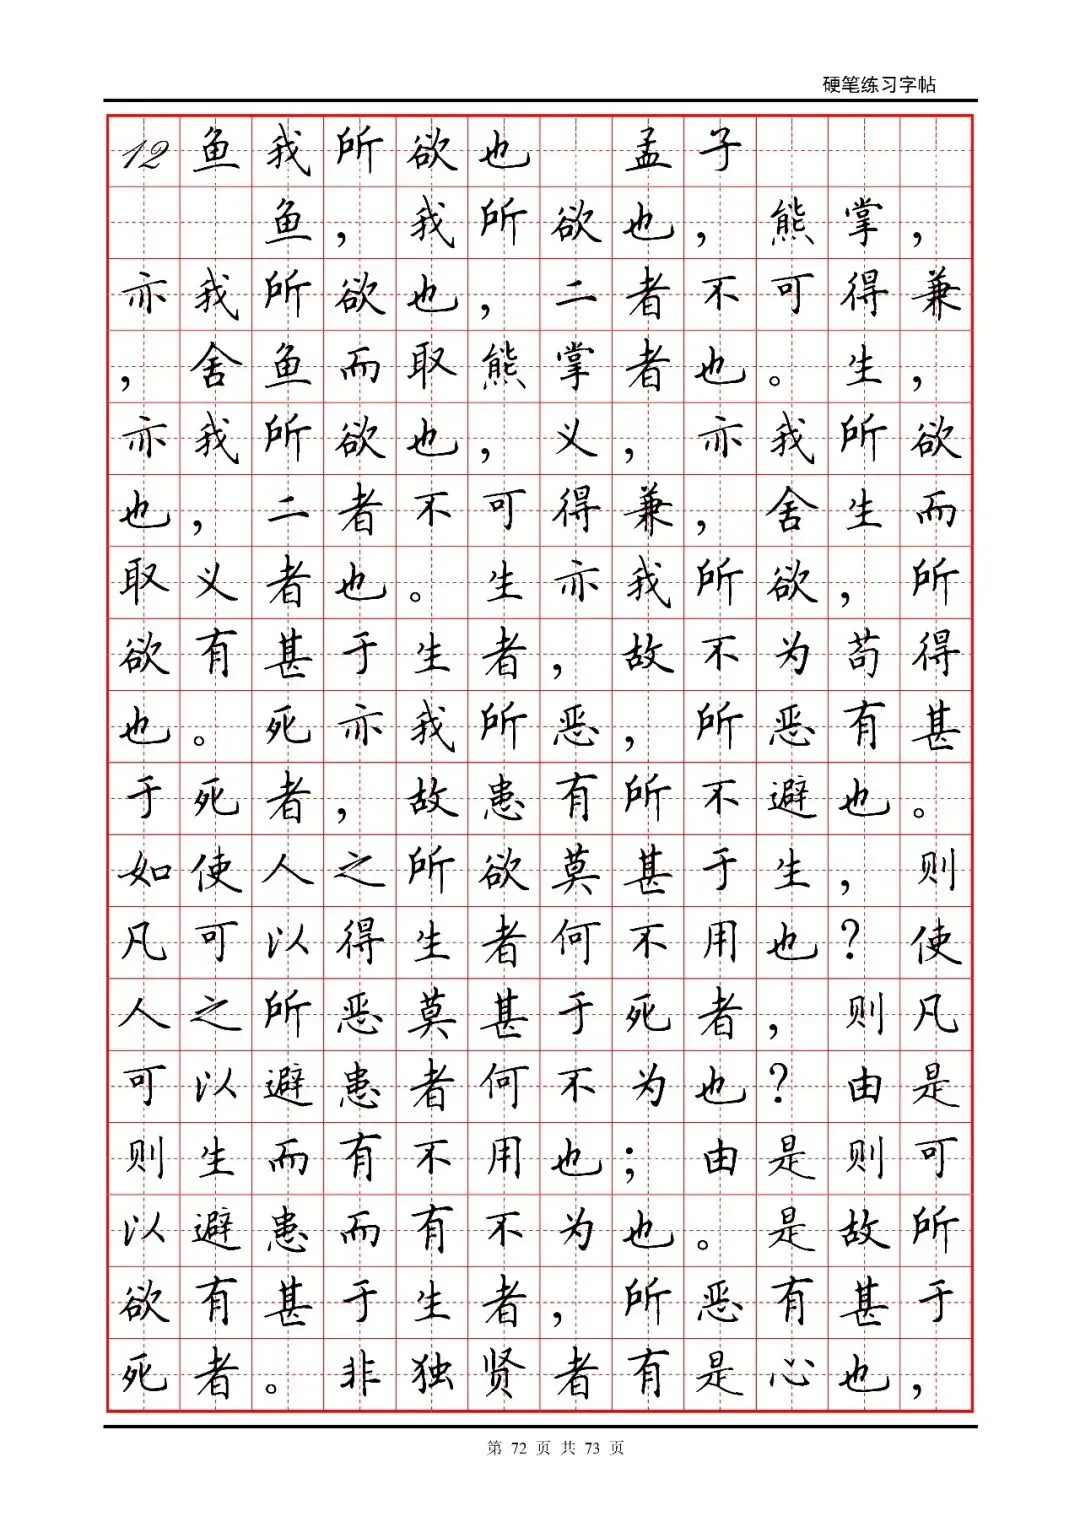 硬笔练习字帖
12鱼我所欲也 孟子
鱼，我所欲也，熊掌，
亦我所欲也，二者不可得兼
，舍鱼而取熊掌者也。生，
亦我所欲也，义，亦我所欲
也，二者不可得兼，舍生而
取义者也。生亦我所欲，所
欲有甚于生者，故不为苟得
也。死亦我所恶，所恶有甚
于死者，故患有所不避也。
如使人之所欲莫甚于生，则
凡可以得生者何不用也？使
人之所恶莫甚于死者，则凡
可以避患者何不为也？由是
则生而有不用也；由是则可
以避患而有不为也。是故所
欲有甚于生者，所恶有甚于
死者。非独贤者有是心也，
第 72 页 共 73 页